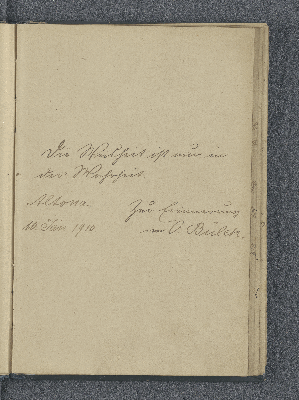 Die Weisheit ist nur in
der Wahrheit.
Altona
10. Juni 1910
Zur Erinnerung
von